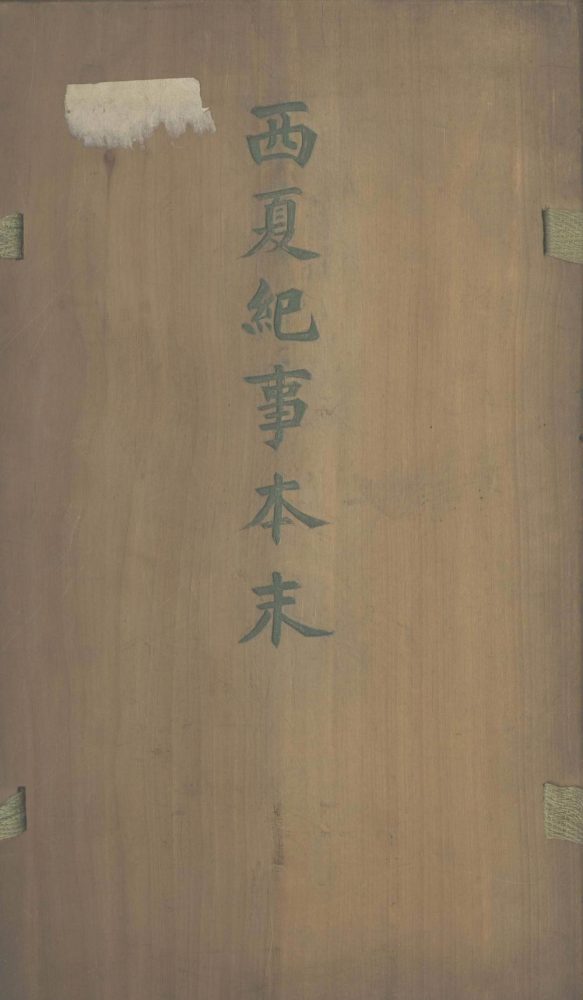 西夏紀事本末